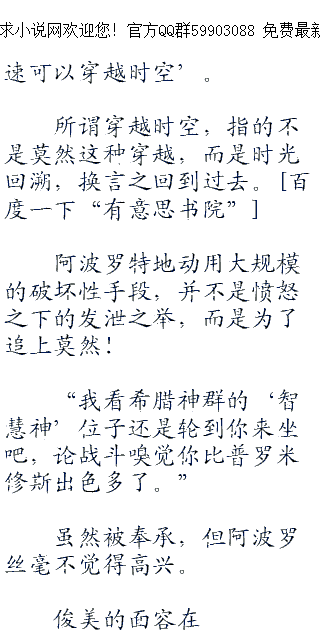 求小说网欢迎您！官方QQ群59903088 免费最新
速可以穿越时空’。
所谓穿越时空，指的不
是莫然这种穿越，而是时光
回溯，换言之回到过去。[百
度一下“有意思书院”]
阿波罗特地动用大规模
的破坏性手段，并不是愤怒
之下的发泄之举，而是为了
追上莫然！
“我看希腊神群的‘智
慧神’位子还是轮到你来坐
吧，论战斗嗅觉你比普罗米
修斯出色多了。”
虽然被奉承，但阿波罗
丝毫不觉得高兴。
俊美的面容在